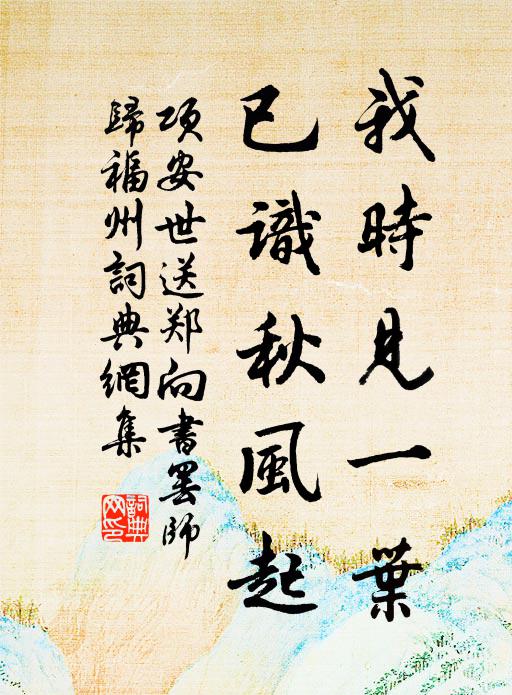 我時見一葉
已識秋風起
项安世送郑向書罢師
歸福州詞典網集
詞典
网印